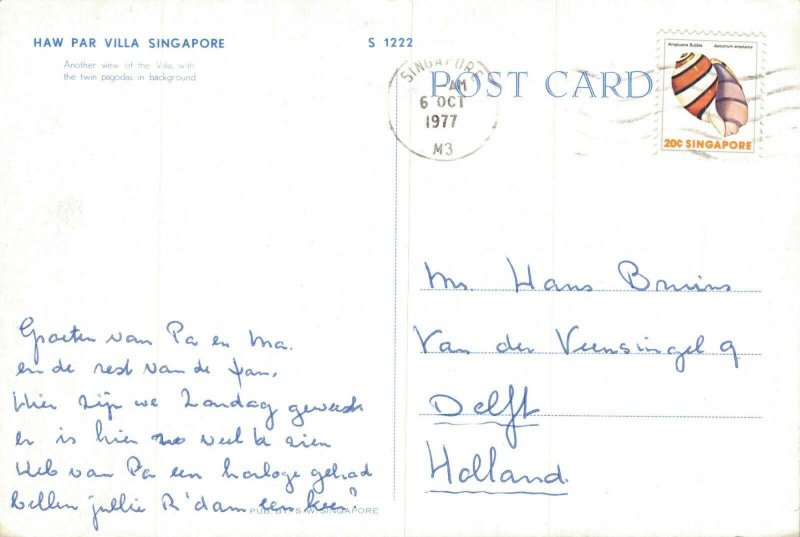 HAW PAR VILLA SINGAPORE
S 1222
Another view of the Villa, with
the twin pagodas in background.
POST CARD
SINGAPORE
-AM
6 OCT
1977
M3
Amplustre Bubble Aplustrum amplustre
20¢ SINGAPORE
Groeten van Pa en Ma.
en de rest van de fam.
Hier zijn we Zondag geweest
er is hier zo veel te zien
Heb van Pa een horloge gehad
bellen jullie R'dam een keer?
Hans Bruins
Van der Veensingel 9
Delft
Holland.
PUB. BY: S.W. SINGAPORE